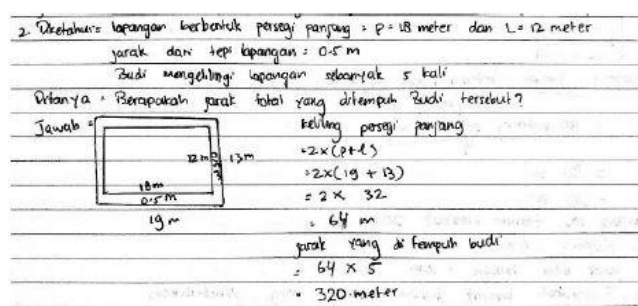 2. Diketahui = lapangan berbentuk persegi panjang = P = 18 meter dan L = 12 meter
jarak dari tepi lapangan = 0.5 m
Budi mengelilingi lapangan sebanyak 5 kali
Ditanya = Berapakah jarak total yang ditempuh Budi tersebut?
Jawab =
12 m
0.5 m
13 m
18 m
0.5 m
19 m
keliling persegi panjang
= 2 x (P + l)
= 2 x (19 + 13)
= 2 x 32
= 64 m
jarak yang di tempuh budi
= 64 x 5
= 320 meter